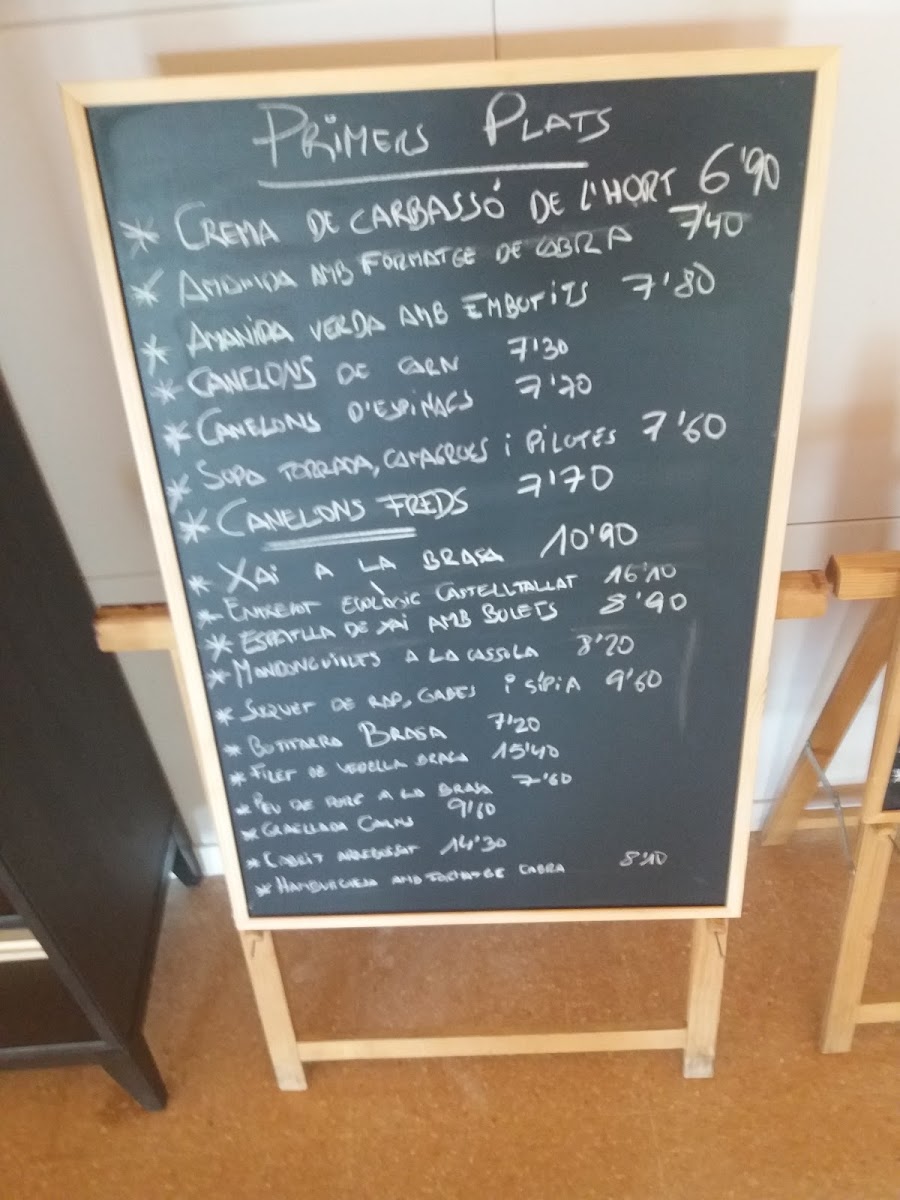 PRIMERS PLATS
* CREMA DE CARBASSÓ DE L'HORT 6'90
* AMANIDA AMB FORMATGE DE CABRA 7'40
* AMANIDA VERDA AMB EMBUTITS 7'80
* CANELONS DE CARN 7'30
* CANELONS D'ESPINACS 7'20
* SOPA TORRADA, CAMAGROCS I PILOTES 7'60
* CANELONS FREDS 7'70
* XAI A LA BRASA 10'90
* ENTRECOT ECOLÒGIC CASTELLTALLAT 16'10
* ESPATLLA DE XAI AMB BOLETS 8'90
* MANDONGUILLES A LA CASSOLA 8'20
* SUQUET DE RAP, GABES I SÍPIA 9'60
* BOTIFARRA BRASA 7'20
* FILET DE VEDELLA BRASA 15'40
* PEU DE PORC A LA BRASA 7'60
* GRAELLADA CARNS 9'60
* CABRIT ARREBOSSAT 14'30
* HAMBURGUESA AMB FORMATGE CABRA 8'10